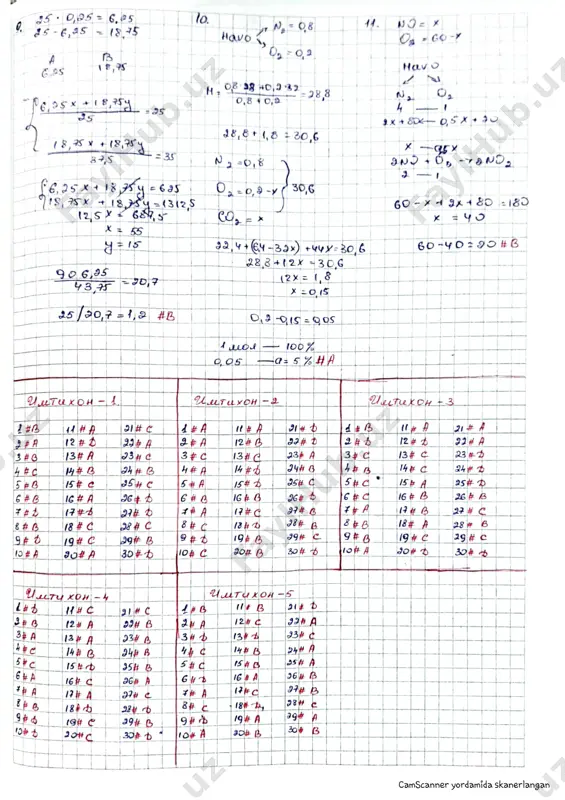 9.
25 · 0,25 = 6,25
25 - 6,25 = 18,75
A B
6.25 18,75
6,25x + 18,75y
25
= 25
18,75x + 18,75y
37,5
= 35
6,25x + 18,75y = 625
18,75x + 18,75y = 1312,5
12,5x = 687,5
x = 55
y = 15
906,25
43,75
= 20,7
25/20,7 = 1,2 #B
10.
N2 = 0,8
Havo
O2 = 0,2
M = 0,8·28 + 0,2·32
0,8 + 0,2
= 28,8
28,8 + 1,8 = 30,6
N2 = 0,8
O2 = 0,2 - x
30,6
CO2 = x
22,4 + (6,4 - 32x) + 44x = 30,6
28,8 + 12x = 30,6
12x = 1,8
x = 0,15
0,2 - 0,15 = 0,05
1 мол — 100%
0,05 — a = 5% #A
11.
NO = x
O2 = 60-x
Havo
N2 O2
4 — 1
2NO + O2 → 2NO2
2 — 1
60 - x + 2x + 80 = 180
x = 40
60 - 40 = 20 #B
Имтихон-1
1#B 11#A 21#C
2#A 12#D 22#A
3#B 13#A 23#C
4#C 14#B 24#B
5#B 15#C 25#C
6#B 16#A 26#D
7#D 17#D 27#D
8#B 18#C 28#C
9#D 19#C 29#B
10#A 20#A 30#D
Имтихон-2
1#A 11#A 21#D
2#A 12#B 22#D
3#C 13#C 23#A
4#A 14#D 24#B
5#A 15#D 25#C
6#B 16#B 26#B
7#A 17#C 27#B
8#C 18#D 28#B
9#D 19#B 29#C
10#C 20#B 30#D
Имтихон-3
1#B 11#A 21#A
2#D 12#D 22#A
3#C 13#C 23#D
4#B 14#C 24#D
5#C 15#A 25#D
6#C 16#B 26#B
7#A 17#B 27#C
8#B 18#A 28#B
9#D 19#C 29#C
10#A 20#D 30#D
Имтихон-4
1#D 11#C 21#C
2#B 12#A 22#B
3#A 13#A 23#B
4#C 14#B 24#B
5#C 15#D 25#B
6#A 16#C 26#A
7#A 17#A 27#C
8#B 18#D 28#D
9#D 19#C 29#B
10#D 20#C 30#D
Имтихон-5
1#B 11#B 21#D
2#A 12#C 22#A
3#D 13#D 23#C
4#C 14#B 24#A
5#C 15#B 25#A
6#D 16#A 26#B
7#A 17#C 27#B
8#C 18#D 28#C
9#D 19#A 29#A
10#A 20#B 30#B
FaylHub.uz
CamScanner yordamida skanerlangan